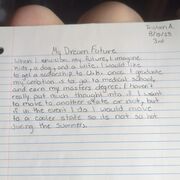 Tristan A.
8/15/23
3rd
My Dream Future
When I envision my future, I imagine
kids, a dog, and a wife. I would like
to get a scholarship to UNLV. Once I graduate
my ambition is to go to medical school,
and earn my masters degree. I haven't
really put much thought into if I want
to move to another state or not, but
if in the event I do I would move
to a cooler state so its not so hot
during the summers.